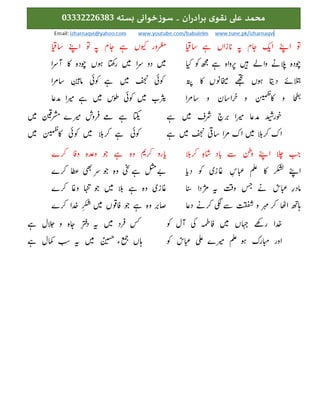 محمد علی نقوی برادران ۔ سوزخوانی بستہ 03332226383
Email: izharnaqvi@yahoo.com www.youtube.com/babulelm www.tune.pk/izharnaqvi
تو اپنے اک جام پہ نازاں ہے ساقیا مغرور کیوں ہے جام پہ تو اپنے ساقیا
چودہ پلانے والے ہیں پرواہ ہے مجھ کو کیا میں دو سرا میں رکھتا ہوں چودہ کا آسرا
بتلائے دیتا ہوں تجھے میخانوں کا پتہ کوئی نجف میں ہے کوئی سامرا
بطحا و کاظمین و خراسان و سامرا یثرب میں کوئی طوس میں ہے میرا مدعا
خورشید مدعا میرا برج شرف میں ہے یکتا ہے مے فروش میرے مشرقین میں
اک کربلا میں اک مرا ساقی نجف میں ہے کوئی ہے کربلا میں کوئی کاظمین میں
جب چلا اپنے وطن سے یاد شاہ کربلا یارہ کریم وہ ہے جو وعدہ وفا کرے
اپنے لشکر کا علم عباس غازی کو دیا بے مثل ہے سخی وہ جو سر بھی عطا کرے
مادر عباس نے جس وقت یہ مژدا سنا غازی وہ ہے بلا میں جو تنہا وغا کرے
ہاتھ اٹھا کر مہر و شفقت سے لگی کرنے دعا صابر وہ ہے جو فاقوں میں شکر خدا کرے
خدا رکھے جہاں میں فاطمہ کی آل کو کس فرد میں یہ دفتر جاہ و جلال ہے
اور مبارک ہو علم میرے علی عباس کو ہاں جمع حسین میں یہ سب کمال ہے